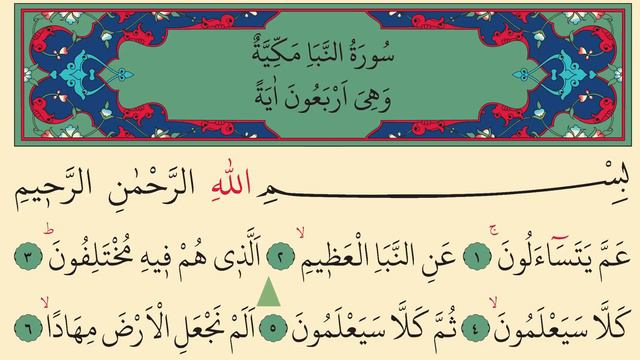 سُورَةُ النَّبَاِ مَكِّيَّةٌ
وَهِىَ اَرْبَعُونَ اٰيَةً
بِسْمِ اللّٰهِ الرَّحْمٰنِ الرَّح۪يمِ
عَمَّ يَتَسَٓاءَلُونَۚ ١ عَنِ النَّبَاِ الْعَظ۪يمِۙ ٢ اَلَّذ۪ى هُمْ ف۪يهِ مُخْتَلِفُونَۜ ٣
كَلَّا سَيَعْلَمُونَۙ ٤ ثُمَّ كَلَّا سَيَعْلَمُونَ ٥ اَلَمْ نَجْعَلِ الْاَرْضَ مِهَادًاۙ ٦